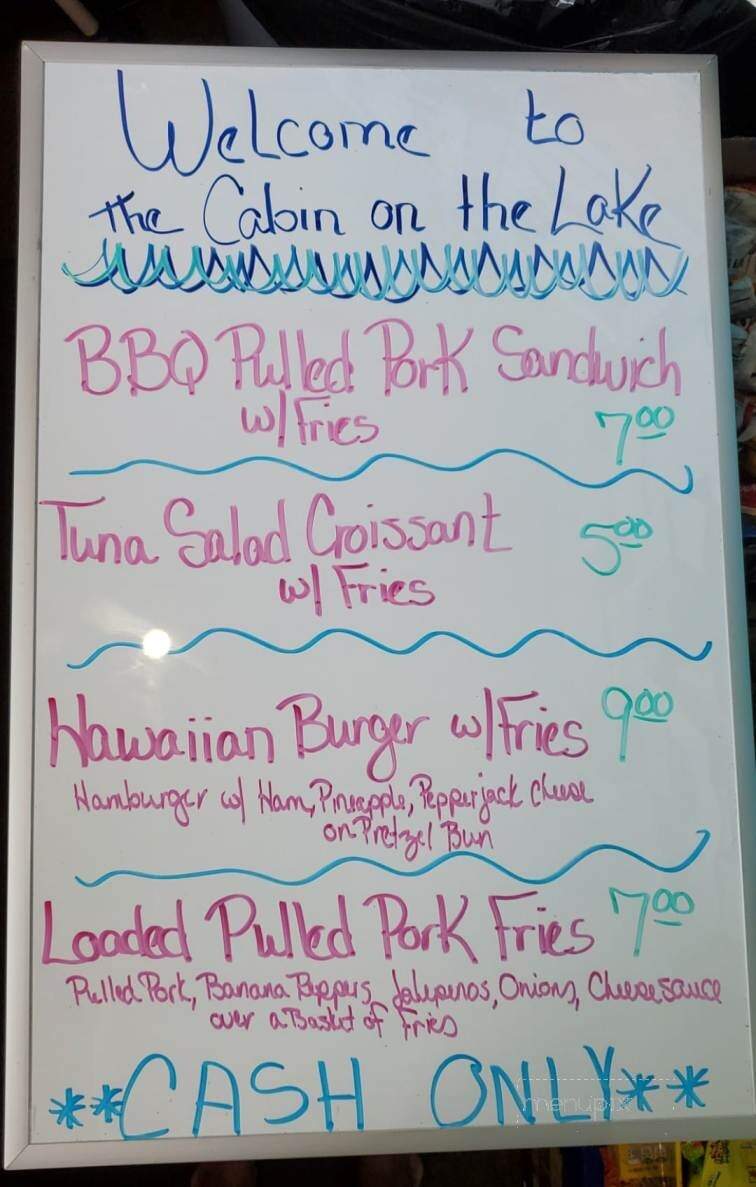 Welcome to
the Cabin on the Lake
BBQ Pulled Pork Sandwich
w/Fries 7.00
Tuna Salad Croissant 5.00
w/ Fries
Hawaiian Burger w/Fries 9.00
Hamburger w/ Ham, Pineapple, Pepperjack cheese
on Pretzel Bun
Loaded Pulled Pork Fries 7.00
Pulled Pork, Banana Peppers, Jalepenos, Onions, Cheese sauce
over a Basket of Fries
**CASH ONLY**
menupix